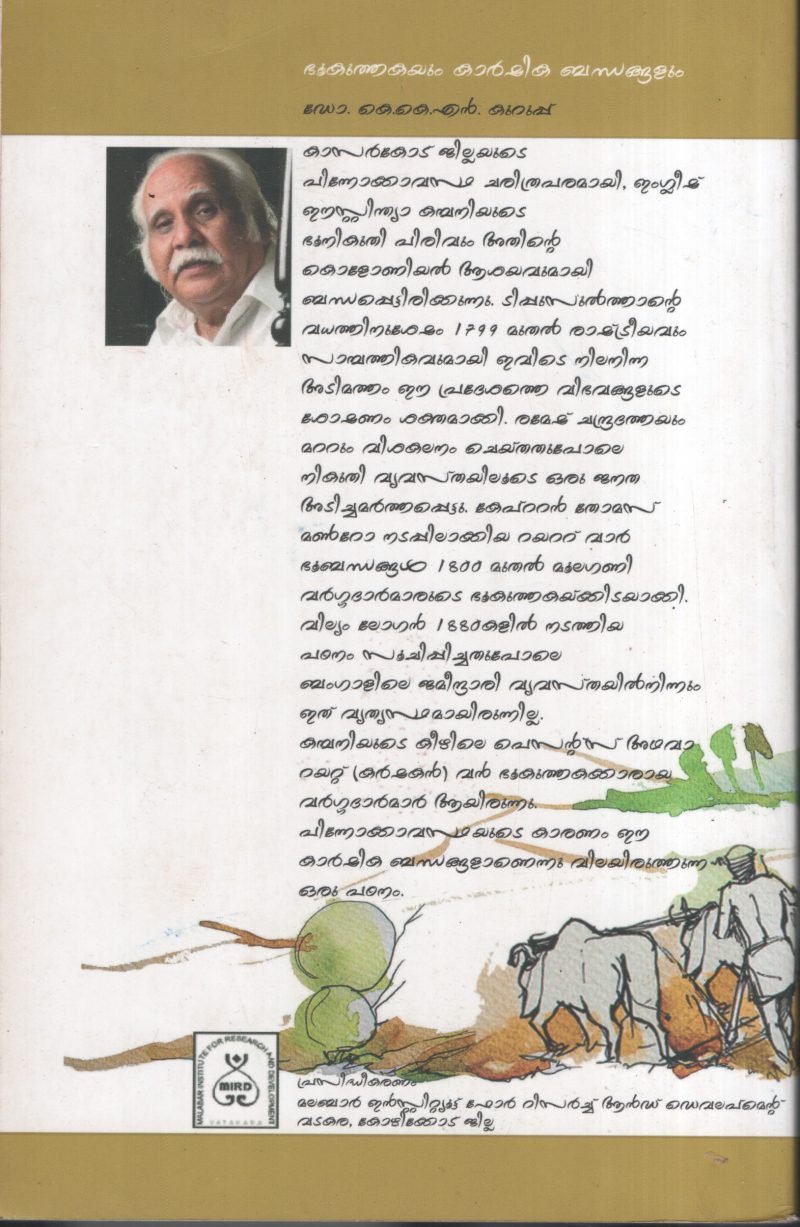 ഭൂകുത്തകയും കാർഷിക ബന്ധങ്ങളും
ഡോ. കെ.കെ.എൻ. കുറുപ്പ്
കാസർകോട് ജില്ലയുടെ
പിന്നോക്കാവസ്ഥ ചരിത്രപരമായി, ഇംഗ്ലീഷ്
ഈസ്റ്റിന്ത്യാ കമ്പനിയുടെ
ഭൂനികുതി പിരിവും അതിന്റെ
കൊളോണിയൽ ആശയവുമായി
ബന്ധപ്പെട്ടിരിക്കുന്നു. ടിപ്പുസുൽത്താന്റെ
വധത്തിനുശേഷം 1799 മുതൽ രാഷ്ട്രീയവും
സാമ്പത്തികവുമായി ഇവിടെ നിലനിന്ന
അടിമത്തം ഈ പ്രദേശത്തെ വിഭവങ്ങളുടെ
ശോഷണം ശക്തമാക്കി. രമേഷ് ചന്ദ്രദത്തയും
മററും വിശകലനം ചെയ്തതുപോലെ
നികുതി വ്യവസ്തയിലൂടെ ഒരു ജനത
അടിച്ചമർത്തപ്പെട്ടു. കേപ്ററൻ തോമസ്
മൺറോ നടപ്പിലാക്കിയ റയററ് വാർ
ഭൂബന്ധങ്ങൾ 1800 മുതൽ മൂലഗണി
വർഗ്ഗദാർമാരുടെ ഭൂകുത്തകയ്ക്കിടയാക്കി.
വില്യം ലോഗൻ 1880കളിൽ നടത്തിയ
പഠനം സൂചിപ്പിച്ചതുപോലെ
ബംഗാളിലെ ജമീന്ദ്രാരി വ്യവസ്തയിൽനിന്നും
ഇത് വ്യത്യസ്ഥമായിരുന്നില്ല.
കമ്പനിയുടെ കീഴിലെ പെസന്റ്സ് അഥവാ
റയറ്റ് (കർഷകൻ) വൻ ഭൂകുത്തകക്കാരായ
വർഗ്ഗദാർമാർ ആയിരുന്നു.
പിന്നോക്കാവസ്ഥയുടെ കാരണം ഈ
കാർഷിക ബന്ധങ്ങളാണെന്നു വിലയിരുത്തുന്ന
ഒരു പഠനം.
MALABAR INSTITUTE FOR RESEARCH AND DEVELOPMENT
MIRD
VATAKARA
പ്രസിദ്ധീകരണം
മലബാർ ഇൻസ്റ്റിറ്റ്യൂട്ട് ഫോർ റിസർച്ച് ആൻഡ് ഡെവലപ്മെന്റ്
വടകര, കോഴിക്കോട് ജില്ല